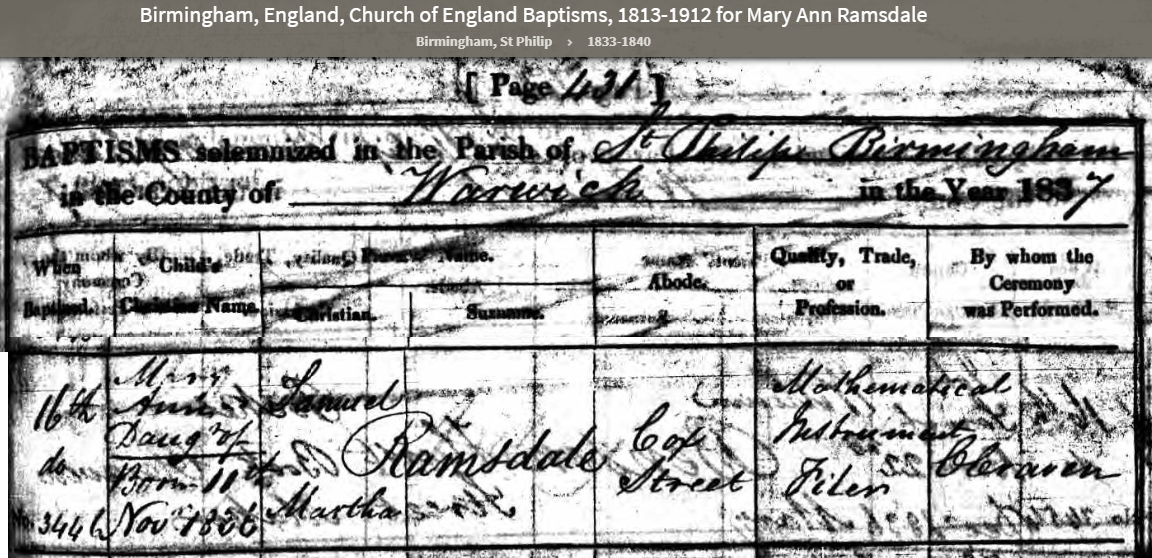 Birmingham, England, Church of England Baptisms, 1813-1912 for Mary Ann Ramsdale
Birmingham, St Philip › 1833-1840
[ Page 431 ]
BAPTISMS solemnized in the Parish of St Philip Birmingham
in the County of Warwick in the Year 1837
When Baptized.
Child's Christian Name.
Parents Name.
Christian.
Surname.
Abode.
Quality, Trade, or Profession.
By whom the Ceremony was Performed.
16th
do
No. 3446
Mary
Ann
Daugr of
Born 11th
Novr 1836
Samuel
Martha
Ramsdale
Cox
Street
Mathematical
Instrument
Filer